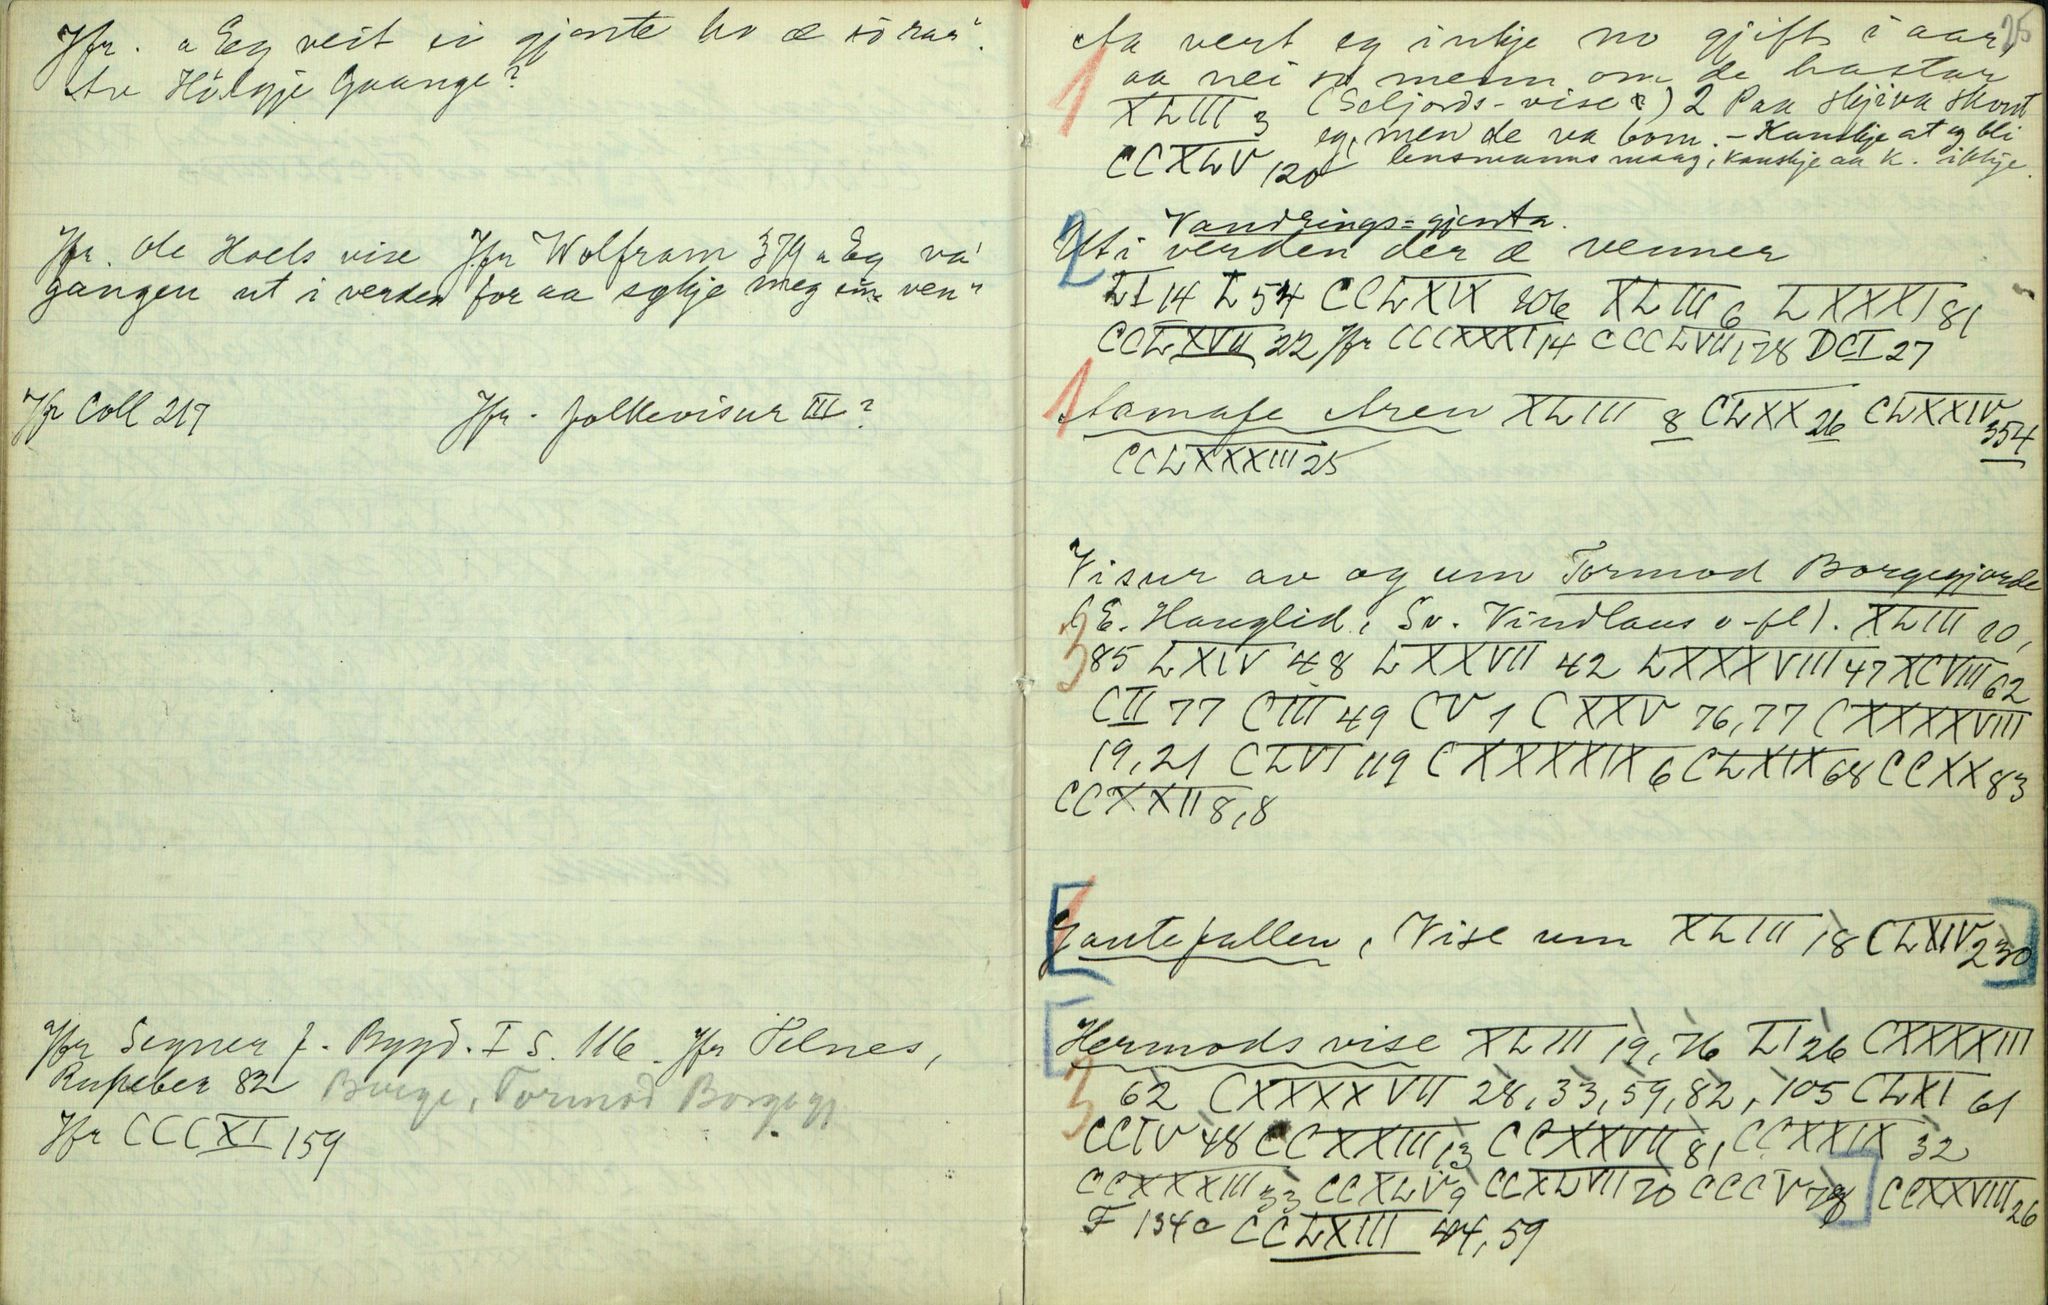 Jfr. "Eg veit ei gjente ho æ so rar".
Av Hölgje Gaange?
Jfr. Ole Hoels vise Jfr Wolfram 379 "Eg va'
gangen ut i verden for aa sykje meg ven"
Jfr Coll 217 Jfr. folkevisur III?
Jfr Segner f. Bygd. I S. 116. Jfr Telnes,
Rupeber 82 Borge, Tormod Borgegj
Jfr CCCXI 159
25
1 Aa vert eg inkje no gjift i aar,
aa nei so menn om de hastar
XLIII 3 (Seljords-vise?) 2 Paa skjiva skout
eg, men de va bom. - Kanskje at eg bli
CCXLV 120 lensmanns maag, kanskje aa k. ikkje.
Vandrings-gjenta.
2 Uti verden der æ venner
LI 14 L 54 CCLXIX 206 XLIII 6 LXXXI 81
CCLXVII 22 Jfr CCCXXXI 14 CCCLVII 178 DCI 27
1 Aamafe Aren XLIII 8 CLXX 26 CLXXIV 354
CCLXXXIII 25
Visur av og um Tormod Borgegjorde
(E. Hauglid, Sv. Vindlaus o-fl). XLIII 10,
3 85 LXIV 48 LXXVII 42 LXXXVIII 47 XCVIII 62
CII 77 CIII 49 CV 1 CXXV 76, 77 CXXXXVIII
19, 21 CLVI 119 CXXXXIX 6 CLXIX 68 CCXX 83
CCXXII 8, 8
[1 Gautefallen, Vise um XLIII 18 CLXIV 230]
[Hermods vise XLIII 19, 76 LI 26 CXXXXIII
3 62 CXXXXVII 28, 33, 59, 82, 105 CLXI 61
CCIV 48 CCXXIII 13 CCXXVII 81 CCXXIX 32
CCXXXIII 33 CCXLV 9 CCXLVII 20 CCCV 78] CCXXVIII 26
F 134c CCLXIII 44, 59